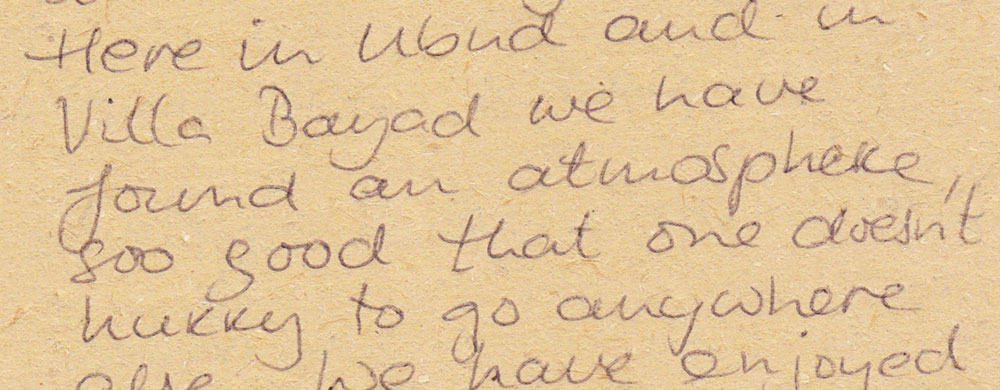 Here in Ubud and in
Villa Bayad we have
found an atmosphere,
soo good that one doesn't
hurry to go anywhere
else. We have enjoyed